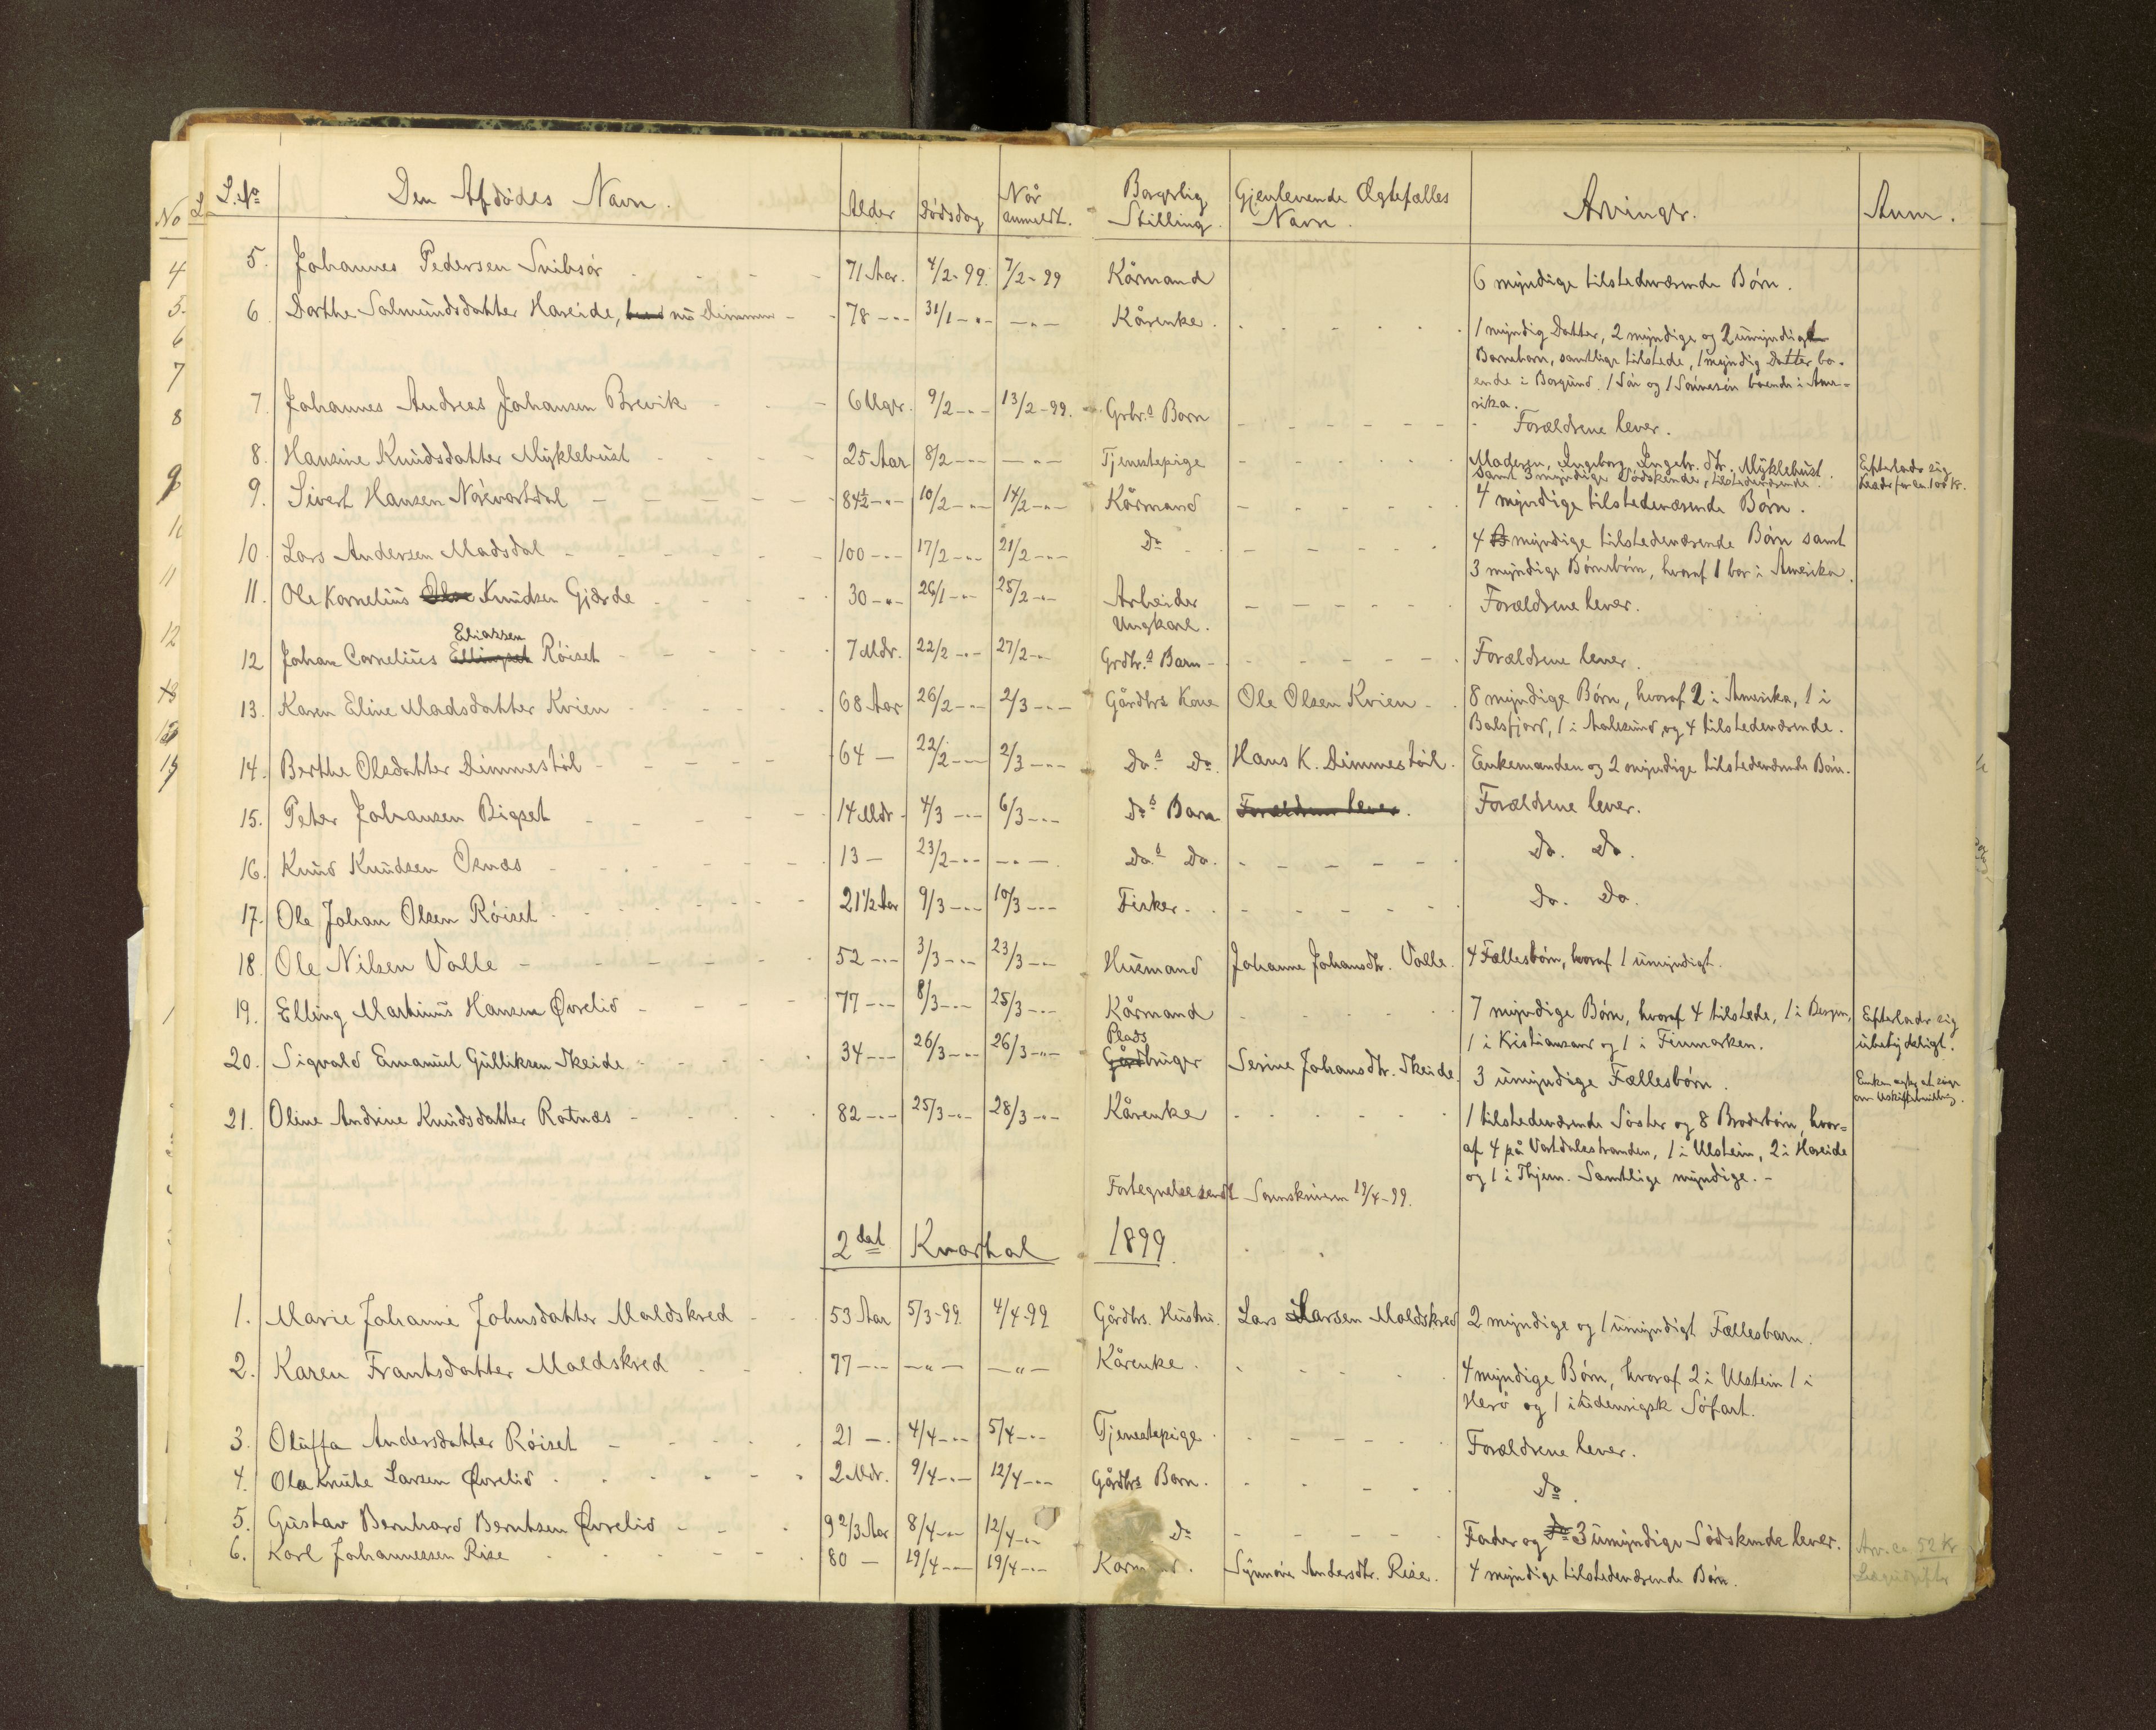 L. No Den Afdødes Navn. Alder Dødsdag Når anmeldt. Borgerlig Stilling. Gjenlevende Ægtefælles Navn. Arvinger. Anm.
5. Johannes Pedersen Snibsør - - - 71 Aar. 4/2-99. 7/2-99 Kårmand 6 myndige tilstedeværende Børn.
6. Dorthe Salmundsdatter Hareide, nu Dimmen - - 78 -"- 31/1 -"- -"- Kårenke. 1 myndig Datter, 2 myndige og 2 umyndige
Barnebarn, samtlige tilstede, 1 myndig Datter bo-
ende i Borgund. 1 Søn og 1 Sønnesøn boende i Ame-
rika.
7. Johannes Andreas Johansen Brevik - - - 6 Uger. 9/2 -"- 13/2-99. Grbr.s Barn - - - - Forældrene lever.
8. Hansine Knudsdatter Myklebust - - - 25 Aar 8/2 -"- -"- Tjenestepige - - - Moderen, Ingeborg Ingebr. dtr. Myklebust. Efterlads sig
samt 3 myndige Sødskende, tilstedeværende. Løsøre for ca 100 kr.
9. Sivert Hansen Nøvevartdal - - - 84½ -"- 10/2 -"- 14/2 -"- Kårmand - - - 4 myndige tilstedeværende Børn.
10. Lars Andersen Madsdal - - - 100 -"- 17/2 -"- 21/2 -"- Do - - - 4 myndige tilstedeværende Børn samt
3 myndige Børnebørn, hvoraf 1 bor i Amerika.
11. Ole Kornelius Knudsen Gjærde - - - 30 -"- 26/1 -"- 25/2 -"- Arbeider - - - Forældrene lever.
Ungkarl.
Eliassen
12 Johan Cornelius Ellingset Røiset - - - 7 Mdr. 22/2 -"- 27/2 -"- Grdbr.s Barn - - - Forældrene lever.
13. Karen Eline Madsdatter Kvien - - - 68 Aar 26/2 -"- 2/3 -"- Gårdbrs Kone Ole Olsen Kvien - 8 myndige Børn, hvoraf 2 i Amerika, 1 i
Balsfjord, 1 i Aalesund, og 4 tilstedeværende.
14. Berthe Olsdatter Dimmestøl - - - 64 - 22/2 -"- 2/3 -"- Do.s Do. Hans K. Dimmestøil. Enkemanden og 2 myndige tilstedeværende Børn.
15. Peter Johansen Bigset - - - 14 Mdr - 4/3 -"- 6/3 -"- Do.s Barn Forældrene lever. Forældrene lever.
16. Knud Knudsen Osnæs - - - 13 - 23/2 -"- -"- Do.s Do. - - - Do. Do.
17. Ole Johan Olsen Røiset - - - 21½ Aar 9/3 -"- 10/3 -"- Fisker. - - - Do. Do.
18. Ole Nilsen Valle - - - 52 -"- 3/3 -"- 23/3 -"- Husmand Johanne Johansdtr. Valle. 4 Fællesbørn, hvoraf 1 umyndigt.
19. Elling Martinus Hansen Øvrelid - - - 77 -"- 8/3 -"- 25/3 -"- Kårmand - - - 7 myndige Børn, hvoraf 4 tilstede, 1 i Bergen, Efterlader sig
Plads 1 i Kristiansand og 1 i Finmarken. ubetydeligt.
20. Sigvald Emanuel Gulliksen Skeide - - - 34 -"- 26/3 -"- 26/3 -"- Gårdbruger Serine Johansdtr. Skeide. 3 umyndige Fællesbørn. Enken agter at søge
om Uskiftebevilling.
21. Oline Andrine Knudsdatter Rotnæs - - - 82 -"- 25/3 -"- 28/3 -"- Kårenke - - - 1 tilstedeværende Søster og 8 Broderbørn, hvor-
af 4 på Vartdalsstranden, 1 i Ulstein, 2 i Hareide
og 1 i Thjem. Samtlige myndige. -
Fortegnelse sendt Sorenskriveren 19/4-99.
2det Kvartal 1899
1. Marie Johanne Johnsdatter Maldskred - - - 53 Aar 5/3-99. 4/4-99 Gårdbrs. Hustru. Lars Larsen Maldskred 2 myndige og 1 umyndigt Fællesbarn.
2. Karen Frantsdatter Maldskred - - - 77 -"- -"- -"- Kårenke. - - - 4 myndige Børn, hvoraf 2 i Ulstein 1 i
Herø og 1 i udenrigsk Søfart.
3. Oluffa Andersdatter Røiset - - - 21 -. 4/4 -"- 5/4 -"- Tjenestepige - - - Forældrene lever.
4. Ola Knute Larsen Øvrelid - - - 2 Mdr. 9/4 -"- 12/4 -"- Gårdbrs Barn. - - - Do.
5. Gustav Bernhard Berntsen Øvrelid - - - 9 2/3 Aar 8/4 -"- 12/4 -"- Do - - - Fader og 3 umyndige Sødskende lever.
6. Karl Johannessen Rise - - - 80 - 19/4 -"- 19/4 -"- Kårmand. Synnøve Andersdtr. Rise. 4 myndige tilstedeværende Børn. Arv. ca. 52 Kr